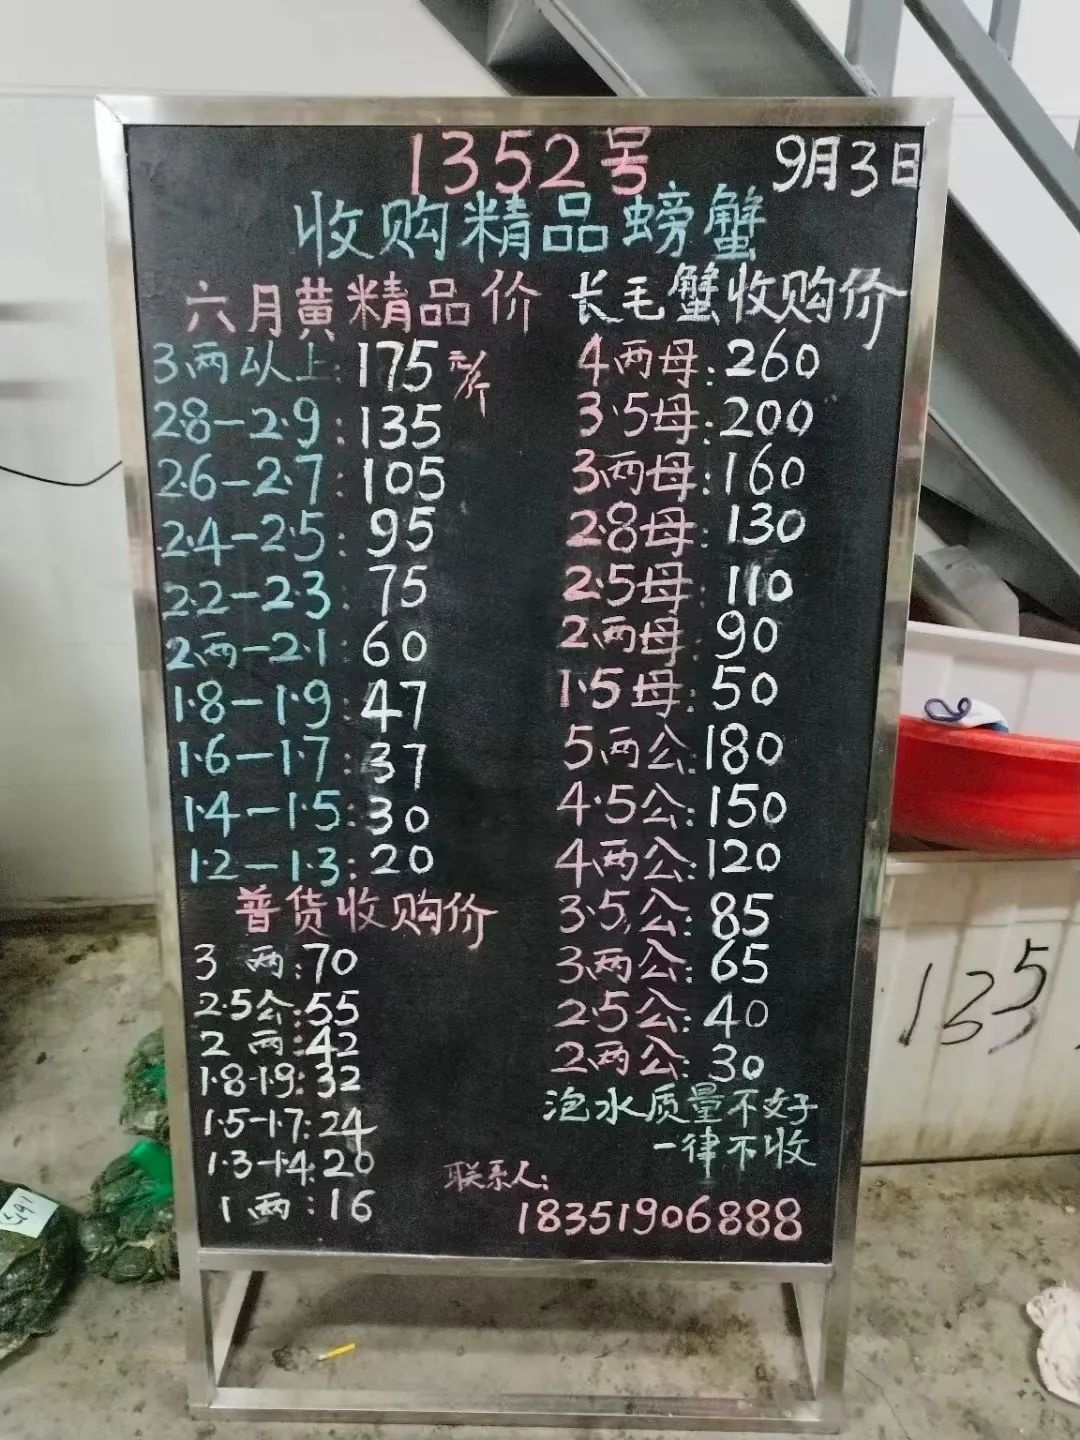 1352号
9月3日
收购精品螃蟹
六月黄精品价
3两以上:175元/斤
2.8-2.9:135
2.6-2.7:105
2.4-2.5:95
2.2-2.3:75
2两-2.1:60
1.8-1.9:47
1.6-1.7:37
1.4-1.5:30
1.2-1.3:20
普货收购价
3 两:70
2.5公:55
2 两:42
1.8-1.9:32
1.5-1.7:24
1.3-1.4:20
1两:16
长毛蟹收购价
4两母:260
3.5母:200
3两母:160
2.8母:130
2.5母:110
2两母:90
1.5母:50
5两公:180
4.5公:150
4两公:120
3.5公:85
3两公:65
2.5公:40
2两公:30
泡水质量不好
一律不收
联系人:
18351906888
135
591